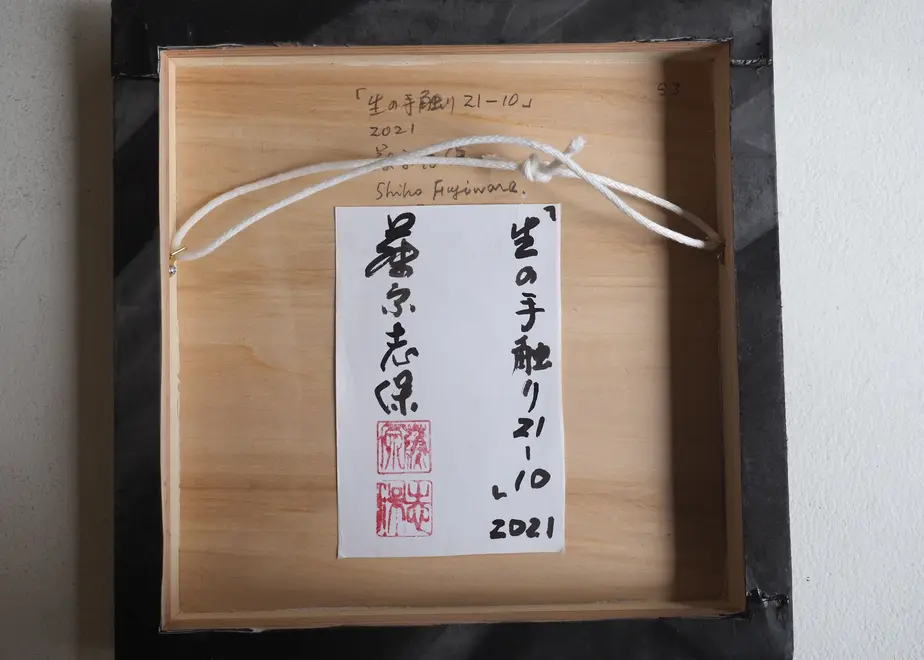 「生の手触り21-10」
2021
Shiho Fujiwara.
S3
「生の手触り21-10」 2021
藤原志保
藤原
志保